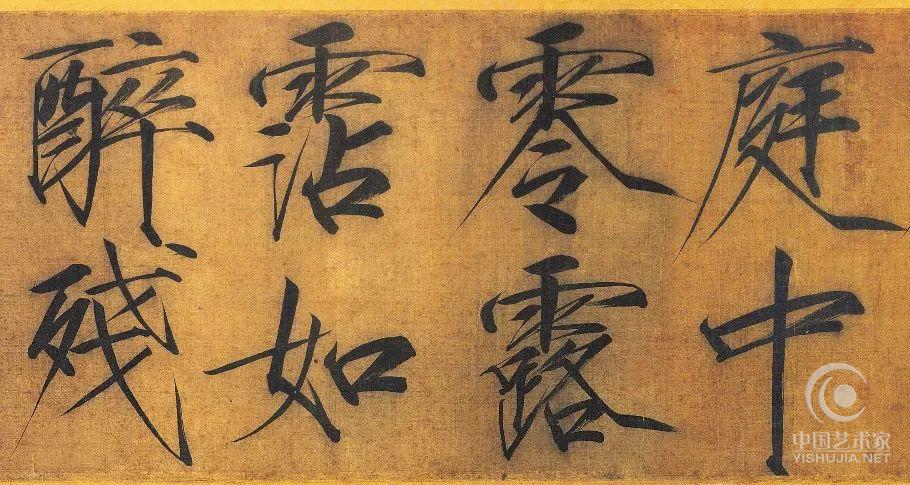 庭中
零露
霑如
醉殘
中国艺术家
YISHUJIA.NET